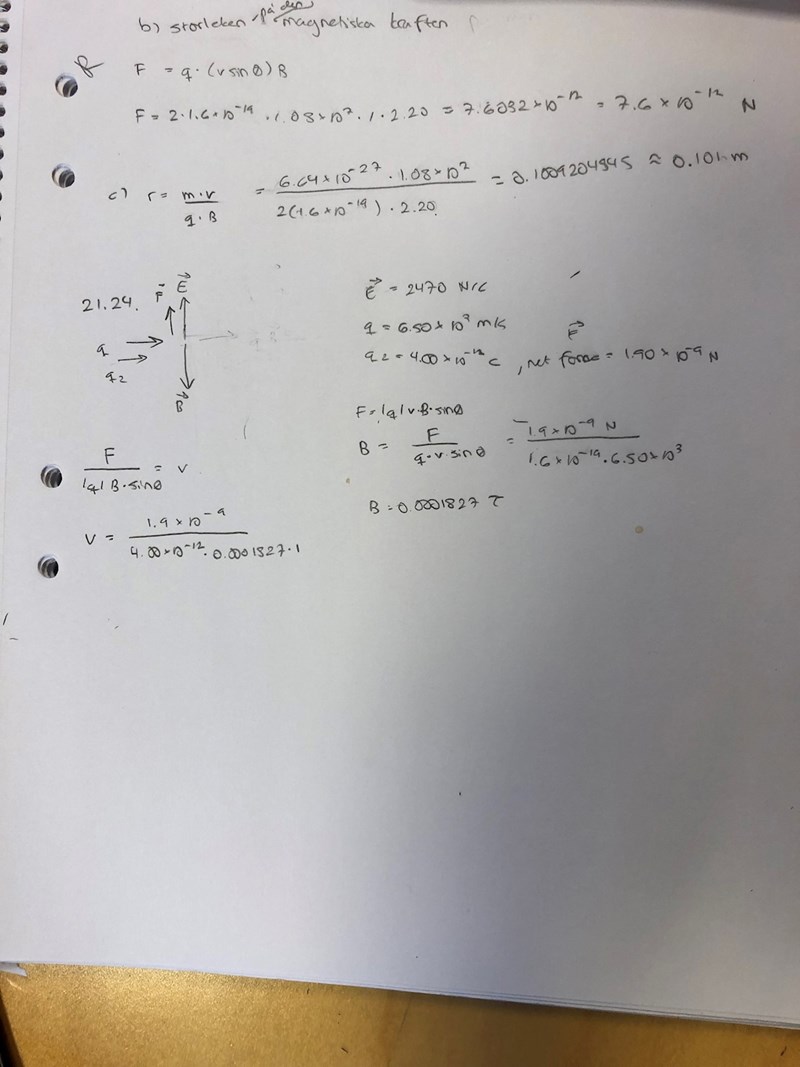 b) storleken på den magnetiska kraften
F = q · (v sin θ) B
F = 2 · 1.6 × 10⁻¹⁹ · 1.08 × 10⁷ · 1 · 2.20 = 7.6032 × 10⁻¹² = 7.6 × 10⁻¹² N
c) r = m · v / q · B = 6.64 × 10⁻²⁷ · 1.08 × 10⁷ / 2(1.6 × 10⁻¹⁹) · 2.20 = 0.1009204545 ≈ 0.101 m
21.24.
F E
q
q2
B
E = 2470 N/C
q = 6.50 × 10³ m/s
q2 = 4.00 × 10⁻¹² C, net force = 1.90 × 10⁻⁹ N
F
F = |q| v · B · sin θ
B = F / q · v · sin θ = 1.9 × 10⁻⁹ N / 1.6 × 10⁻¹⁹ · 6.50 × 10³
B = 0.0001827 T
F / |q| B · sin θ = v
v = 1.9 × 10⁻⁹ / 4.00 × 10⁻¹² · 0.0001827 · 1